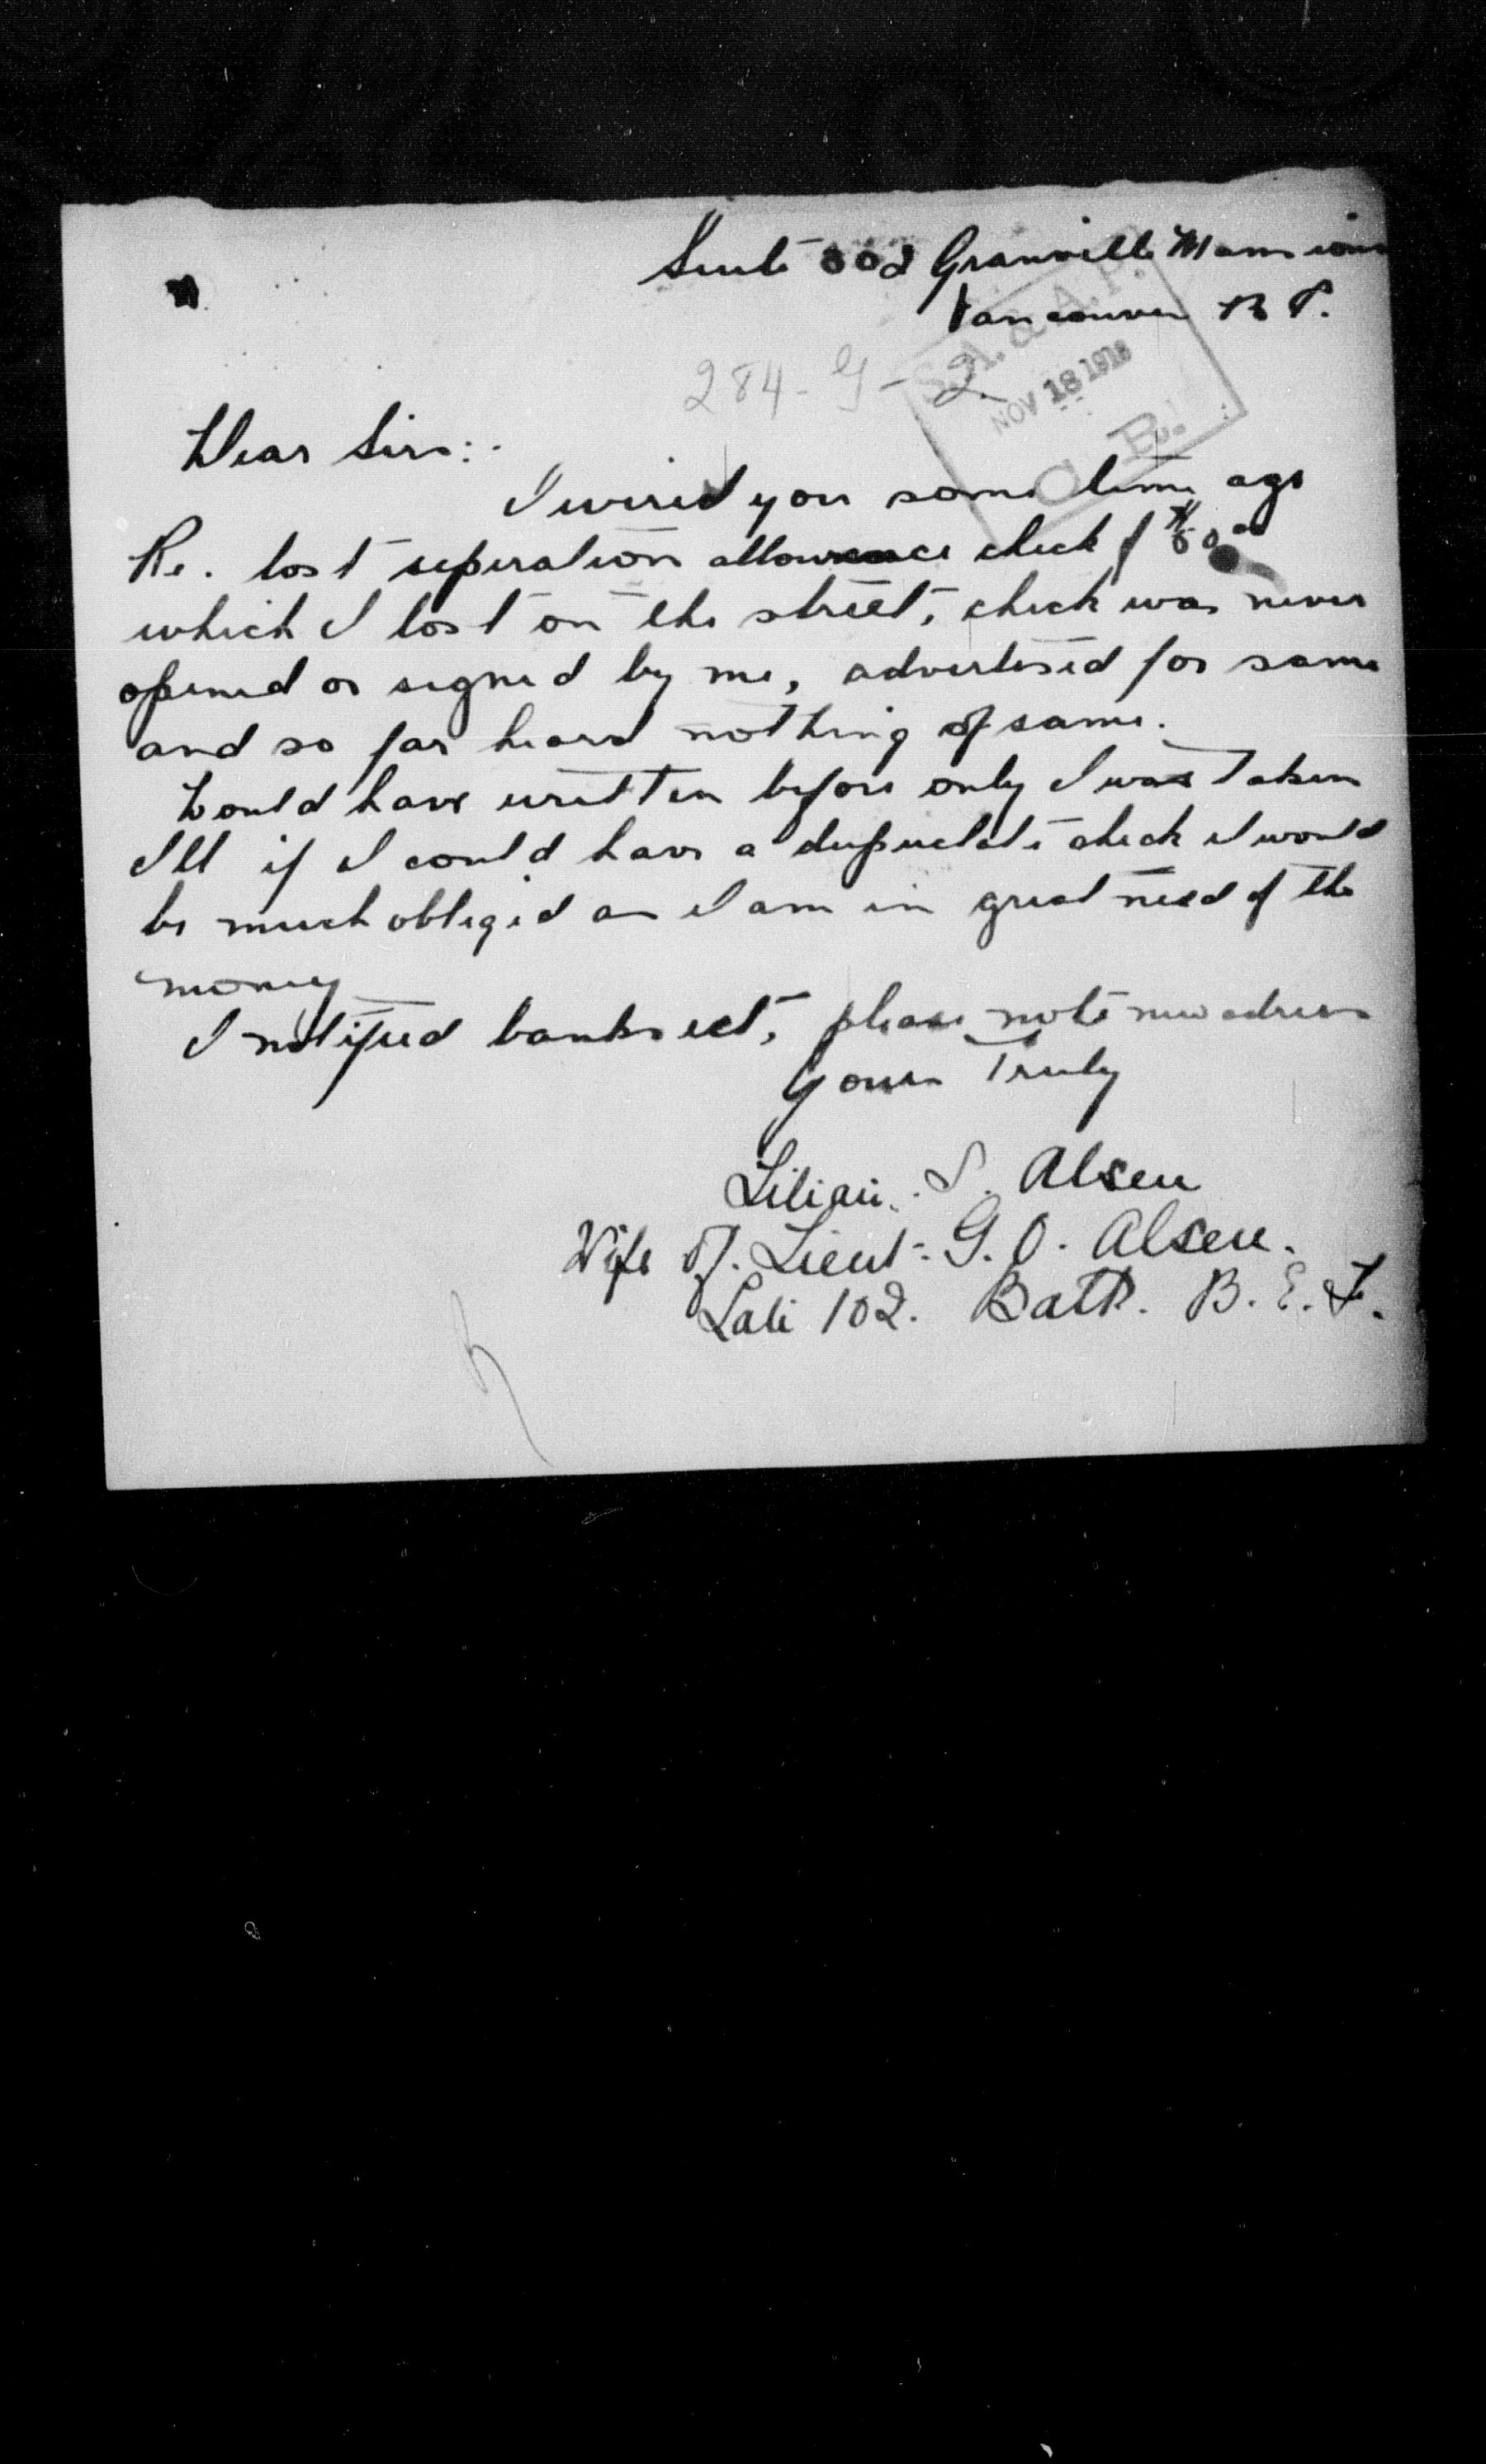 Suite 302 Granville Mansions
Vancouver B C.
284-G-2.
S.A. & A.P.
NOV 18 1918
C B.
Dear Sirs:-
I wired you some time ago
Re. lost seperation allowance check of
which I lost on the street, check was never
opened or signed by me, advertised for same
and so far heard nothing of same.
Would have written before only I was taken
Ill if I could have a dupuclate check I would
be much obliged as I am in great need of the
money
I notified banks ect, please note new adress
Yours Truly
Lilian. S. Olsen
Wife of. Lieut. G. O. Olsen.
Late 102. Batt. B. E. F.